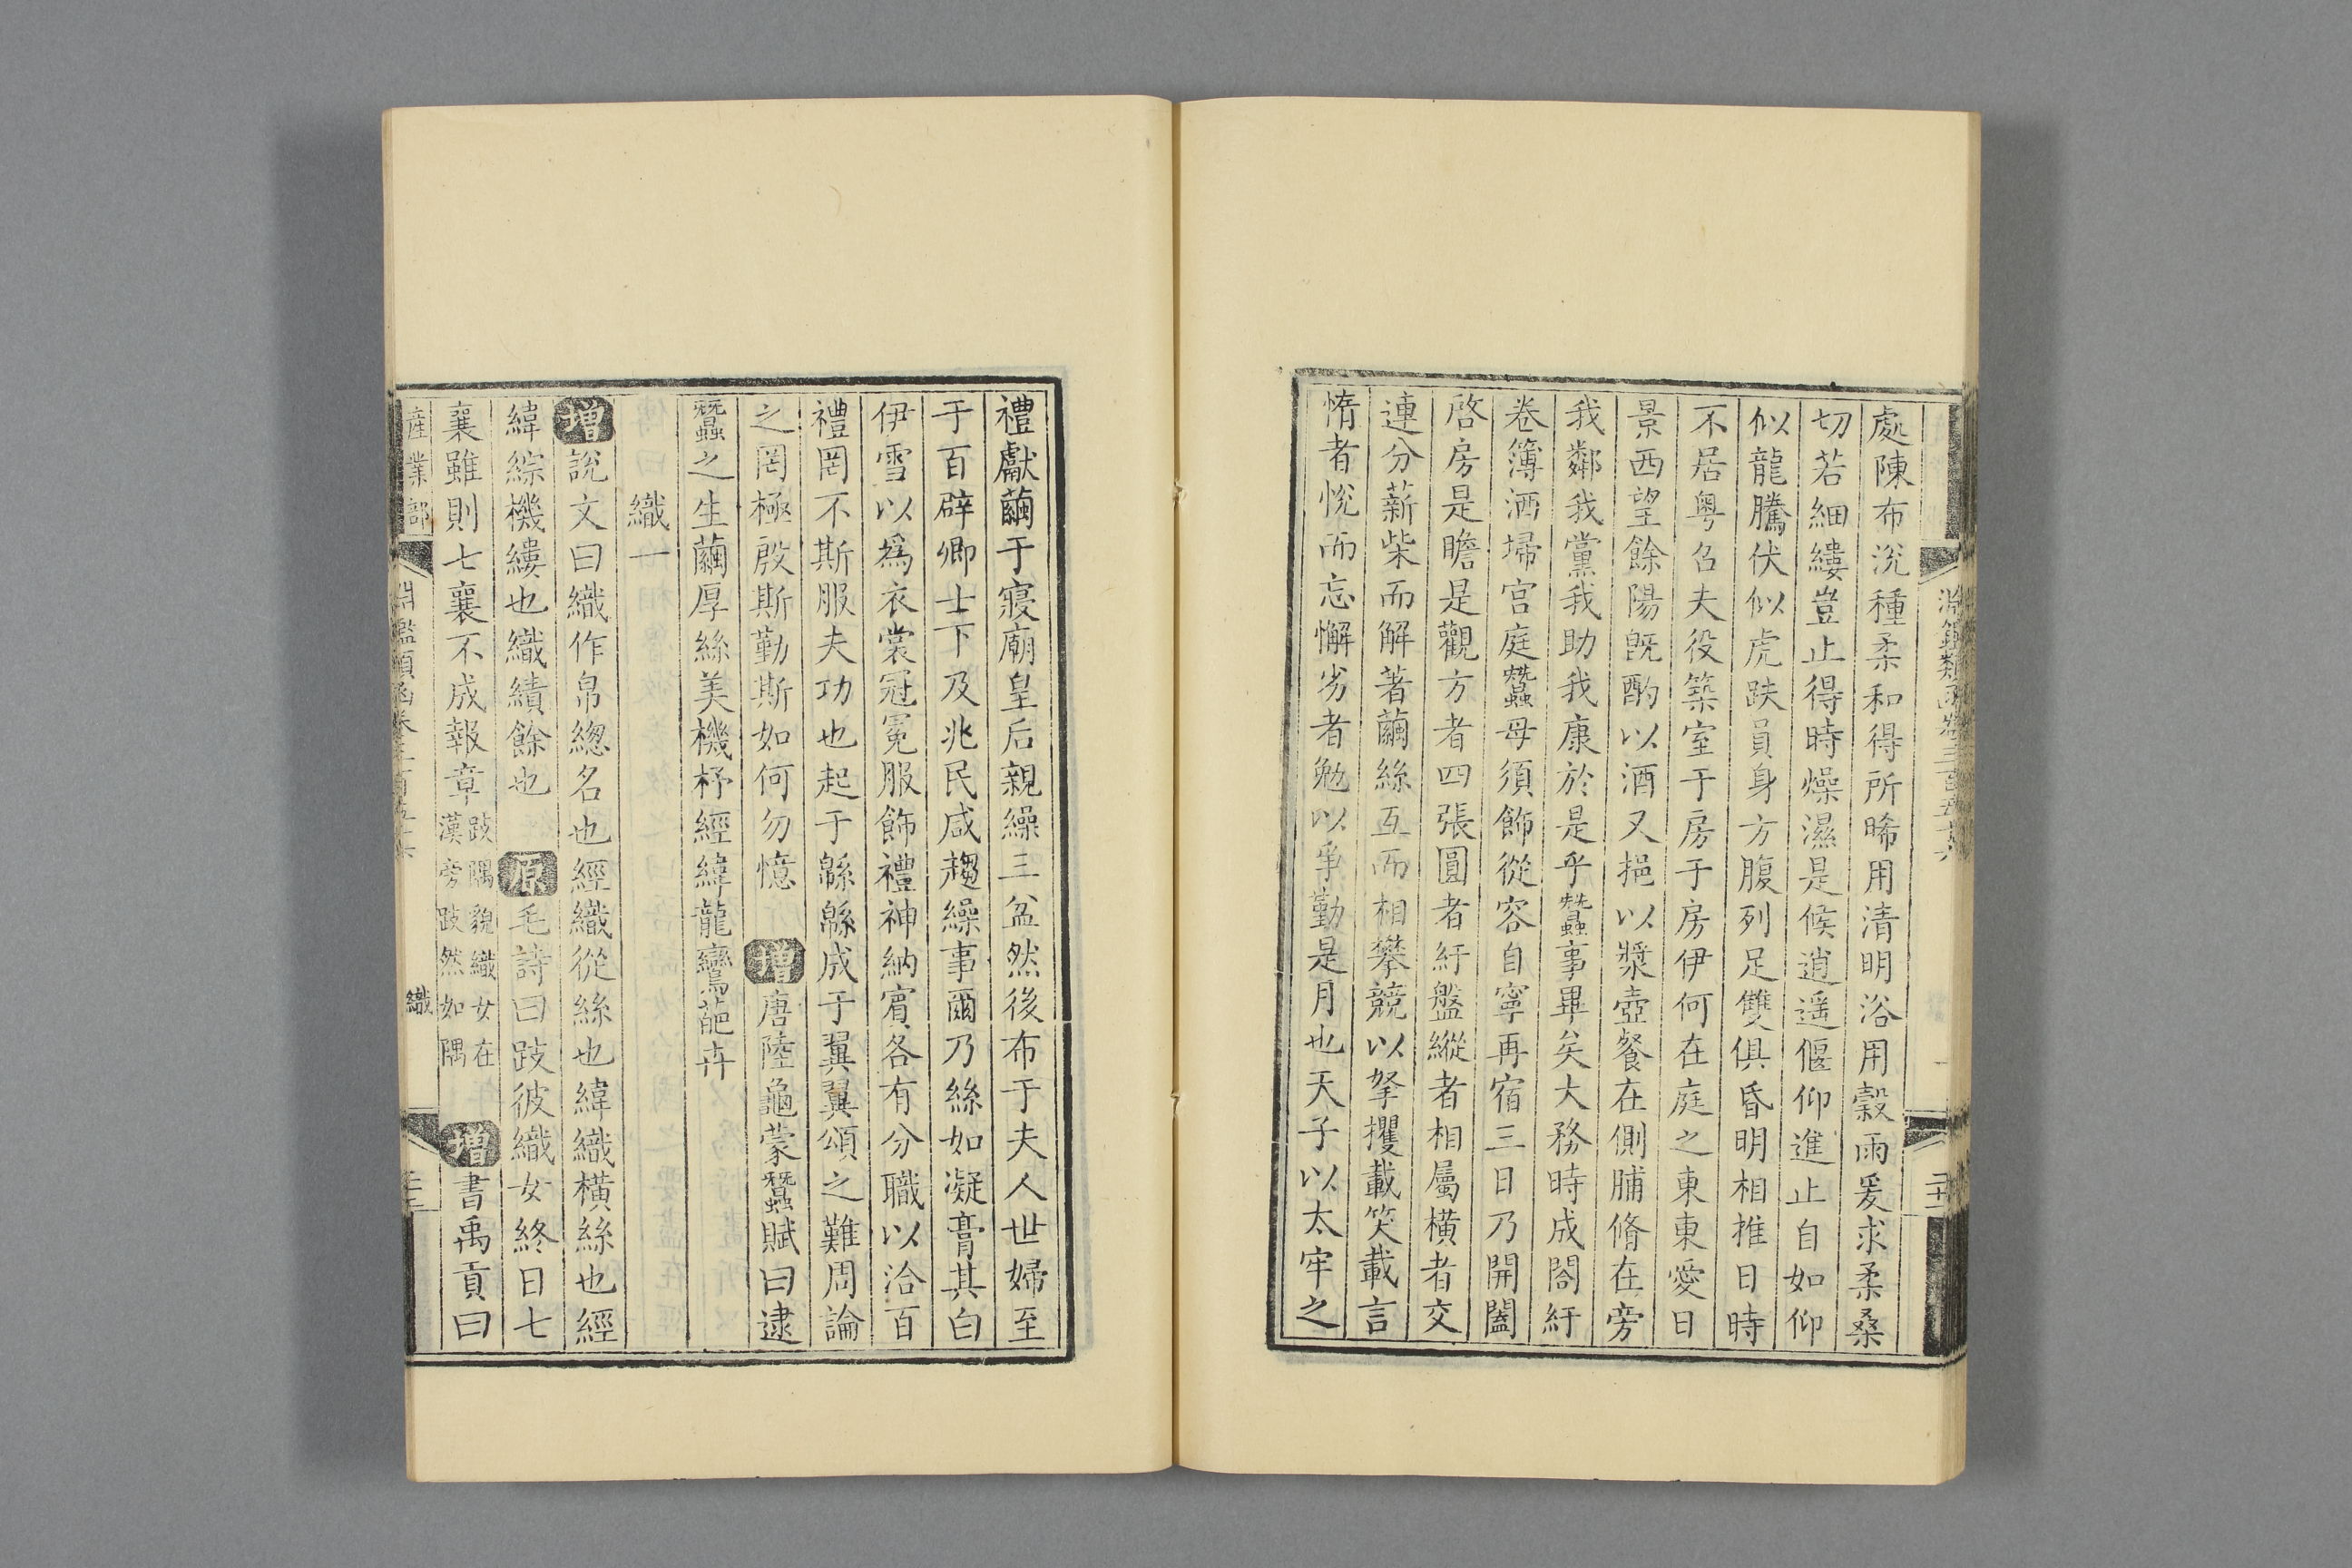 處陳布況種柔和得所晞用清明浴用穀雨爰求柔桑
切若細縷豈止得時燥濕是候逍遥偃仰進止自如仰
似龍騰伏似虎趺員身方腹列足雙俱昏明相推日時
不居粤召夫役築室于房于房伊何在庭之東東愛日
景西望餘陽旣酌以酒又挹以漿壺餐在側脯脩在旁
我鄰我黨我助我康於是乎蠶事畢矣大務時成閤紆
卷簿洒埽宫庭蠶母須飾從容自寧再宿三日乃開闔
啓房是瞻是觀方者四張圓者紆盤縱者相屬横者交
連分薪柴而解著繭絲互而相攀競以拏攫載笑載言
惰者悅而忘懈劣者勉以爭勤是月也天子以太牢之
禮獻繭于寢廟皇后親繰三盆然後布于夫人世婦至
于百辟卿士下及兆民咸趨繰事爾乃絲如凝膏其白
伊雪以爲衣裳冠冕服飾禮神納賓各有分職以洽百
禮罔不斯服夫功也起于緜緜成于翼翼頌之難周論
之罔極殷斯勤斯如何勿憶 增唐陸龜蒙蠶賦曰逮
蠶之生繭厚絲美機杼經緯龍鸞葩卉
織一
增說文曰織作帛緫名也經織從絲也緯織横絲也經
緯綜機縷也織績餘也 原毛詩曰跂彼織女終日七
襄雖則七襄不成報章跂隅貌織女在漢旁跂然如隅 增書禹貢曰
産業部 淵鑑類函卷三百五十六 織